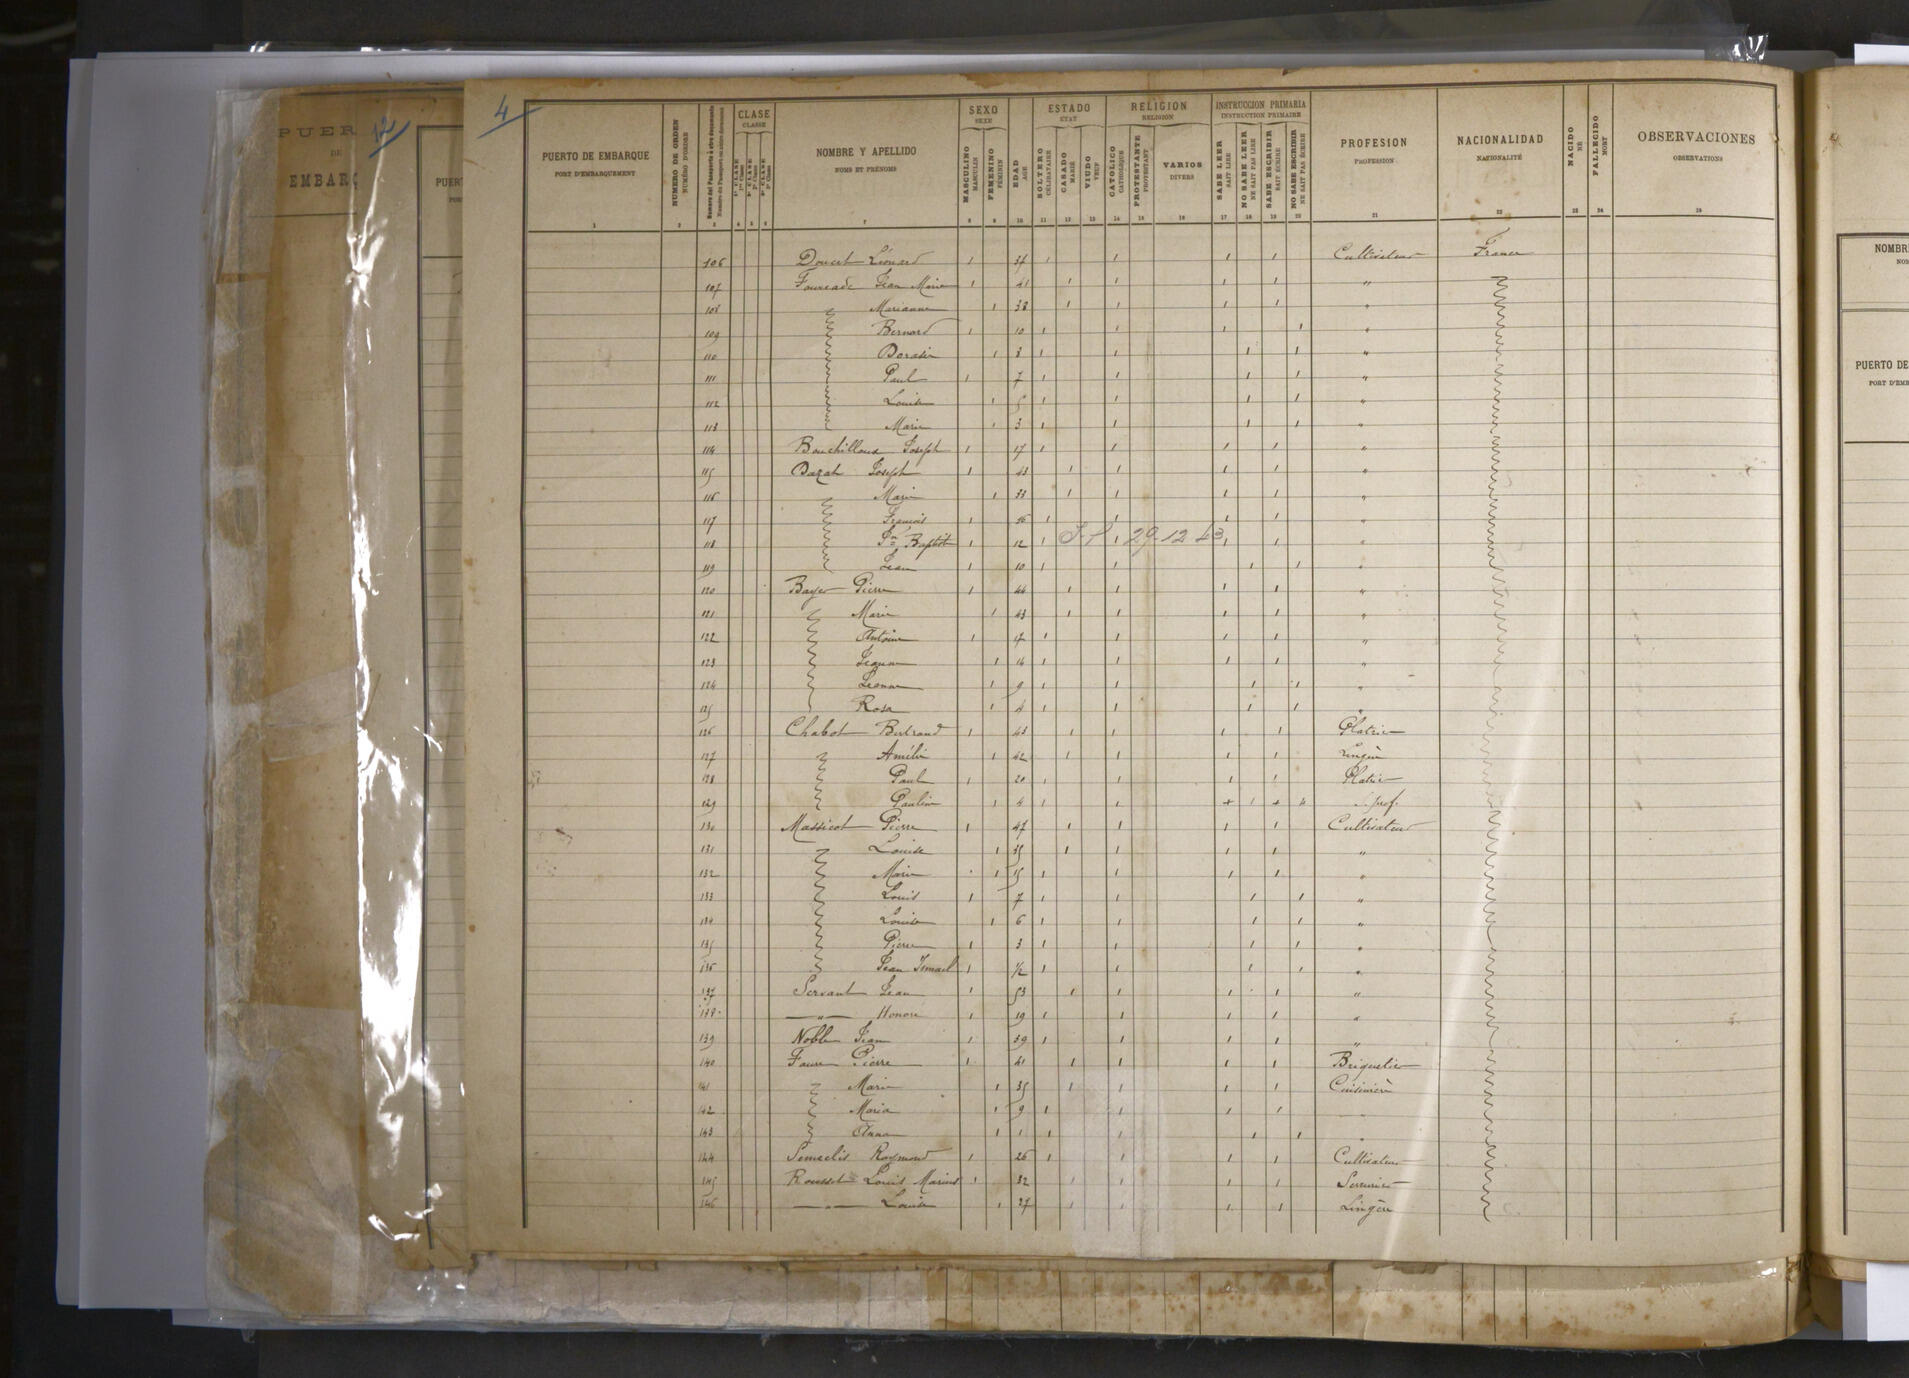 PUER
DE
EMBARQ
12
PUERT
POR
4
PUERTO DE EMBARQUE
PORT D'EMBARQUEMENT
NUMERO DE ORDEN
NUMÉRO D'ORDRE
CLASE
CLASSE
1ª CLASE
2ª CLASE
3ª CLASE
NOMBRE Y APELLIDO
NOMS ET PRÉNOMS
SEXO
SEXE
MASCULINO
MASCULIN
FEMENINO
FÉMININ
EDAD
AGE
ESTADO
ETAT
SOLTERO
CÉLIBATAIRE
CASADO
MARIÉ
VIUDO
VEUF
RELIGION
RELIGION
CATOLICO
CATHOLIQUE
PROTESTANTE
PROTESTANT
VARIOS
DIVERS
INSTRUCCION PRIMARIA
INSTRUCTION PRIMAIRE
SABE LEER
SAIT LIRE
NO SABE LEER
NE SAIT PAS LIRE
SABE ESCRIBIR
SAIT ÉCRIRE
NO SABE ESCRIBIR
NE SAIT PAS ÉCRIRE
PROFESION
PROFESSION
NACIONALIDAD
NATIONALITÉ
NACIDO
NÉ
FALLECIDO
MORT
OBSERVACIONES
OBSERVATIONS
1 2 3 4 5 6 7 8 9 10 11 12 13 14 15 16 17 18 19 20 21 22 23 24 25
106 Doucet Léonard 1 37 1 1 1 1 Cultivateur France
107 Fourcade Jean Marie 1 41 1 1 1 1 "
108 Marianne 1 38 1 1 1 1 "
109 Bernard 1 10 1 1 1 1 "
110 1 8 1 1 1 1 "
111 Paul 1 7 1 1 1 1 "
112 Louise 1 5 1 1 1 1 "
113 Marie 1 3 1 1 1 1 "
114 Bouchilloux Joseph 1 17 1 1 1 1 "
115 Dazat Joseph 1 43 1 1 1 1 "
116 Marie 1 33 1 1 1 1 "
117 François 1 16 1 1 1 1 "
118 Jn Baptiste 1 12 1 1 29 12 43 1 1 "
119 Jean 1 10 1 1 1 1 "
120 Bayer Pierre 1 44 1 1 1 1 "
121 Marie 1 43 1 1 1 1 "
122 Antoine 1 17 1 1 1 1 "
123 Jeanne 1 14 1 1 1 1 "
124 Jeanne 1 9 1 1 1 1 "
125 Rosa 1 4 1 1 1 1 "
126 Chabot Bertrand 1 43 1 1 1 1 Platrier
127 Amélie 1 42 1 1 1 1 Lingère
128 Paul 1 20 1 1 1 1 Platrier
129 Pauline 1 4 1 1 + 1 + S. prof.
130 Massicot Pierre 1 47 1 1 1 1 Cultivateur
131 Louise 1 35 1 1 1 1 "
132 Marie 1 15 1 1 1 1 "
133 Louis 1 7 1 1 1 1 "
134 Louise 1 6 1 1 1 1 "
135 Pierre 1 3 1 1 1 1 "
136 Jean Ismael 1 1/2 1 1 1 1 "
137 Servant Jean 1 53 1 1 1 1 "
138 — " — Honoré 1 19 1 1 1 1 "
139 Noble Jean 1 39 1 1 1 1 "
140 Faure Pierre 1 41 1 1 1 1 Briquetier
141 Marie 1 35 1 1 1 1 Cuisinière
142 Maria 1 9 1 1 1 1
143 Anna 1 1 1 1 1 1 "
144 Raymond 1 26 1 1 1 1 Cultivateur
145 Rousset Louis Marius 1 32 1 1 1 1 Serrurier
146 — " — Louise 1 27 1 1 1 1 Lingère
NOMBR
NOM
PUERTO DE
PORT D'EMB